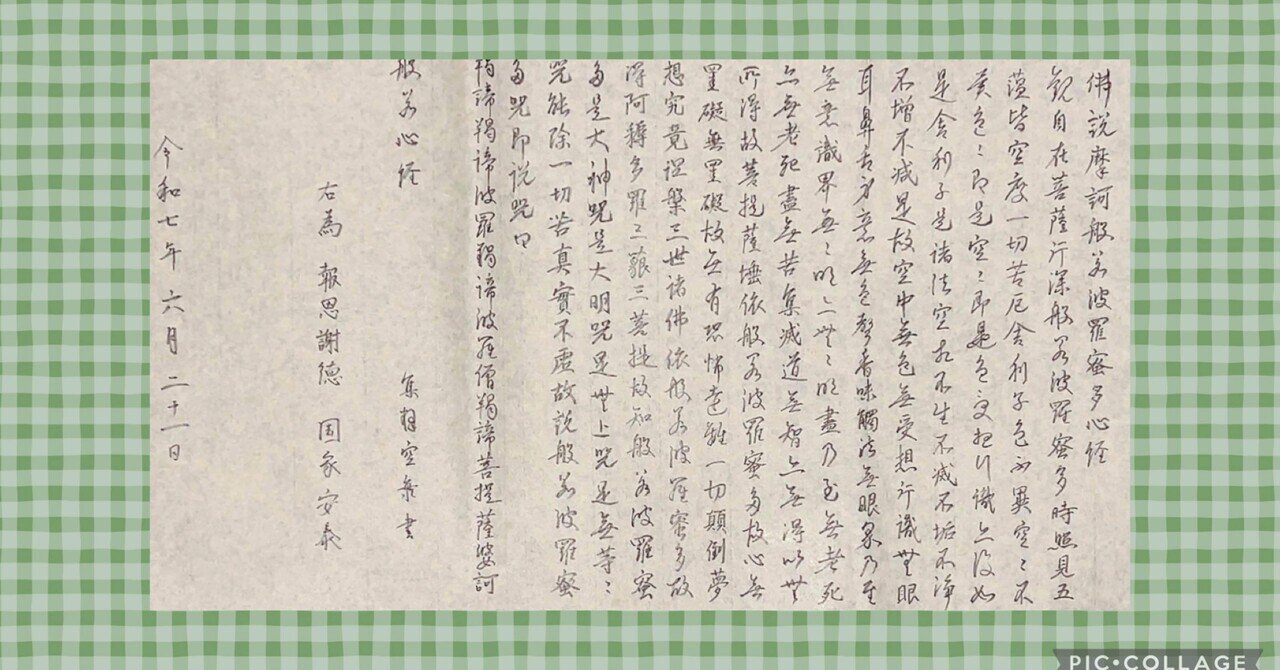 佛説摩訶般若波羅蜜多心経
観自在菩薩行深般若波羅蜜多時照見五
蘊皆空度一切苦厄舎利子色不異空〻不
異色〻即是空〻即是色受想行識亦復如
是舎利子是諸法空相不生不滅不垢不浄
不增不减是故空中無色無受想行識無眼
耳鼻舌身意無色聲香味觸法無眼界乃至
無意識界無〻明亦無〻明盡乃至無老死
亦無老死盡無苦集滅道無智亦無得以無
所得故菩提薩埵依般若波羅蜜多故心無
罣礙無罣礙故無有恐怖遠離一切顛倒夢
想究竟涅槃三世諸佛依般若波羅蜜多故
得阿耨多羅三藐三菩提故知般若波羅蜜
多是大神咒是大明咒是無上咒是無等〻
咒能除一切苦真實不虚故説般若波羅蜜
多咒即説咒曰
羯諦羯諦波羅羯諦波羅僧羯諦菩提薩婆訶
般若心経
右為 報恩謝徳 国家安泰
令和七年 六月 二十一日
PIC•COLLAGE